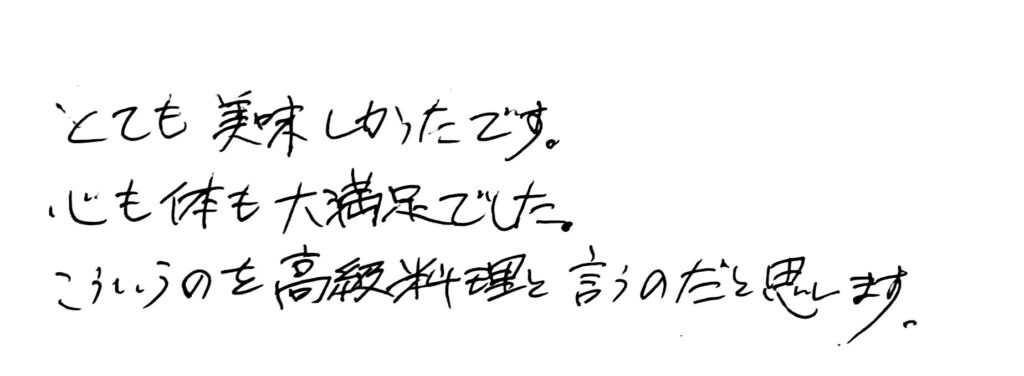 とても美味しかったです。
心も体も大満足でした。
こういうのを高級料理と言うのだと思います。